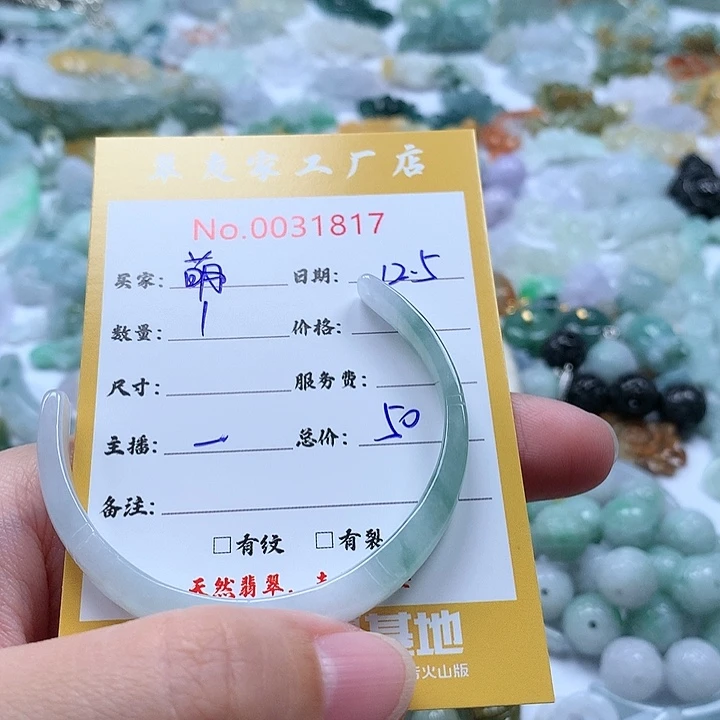 家工厂店
No.0031817
买家: 萌 日期: 12.5
数量: 1 价格:
尺寸: 服务费:
主播: 一 总价: 50
备注:
□有纹 □有裂
天然翡翠,
基地
火山版